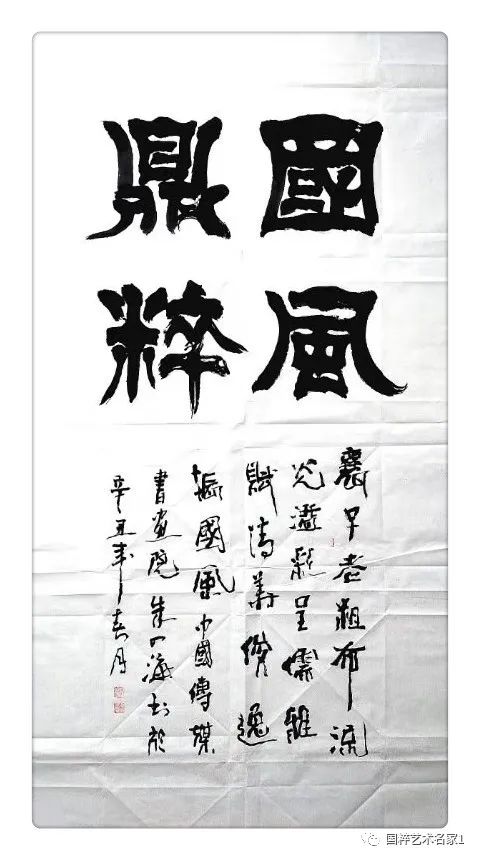 國風
鼎粹
襄子老粗布流
光溢彩呈儒雅
賦清華逸
國風中國傳媒
書畫院朱四海书於
辛丑年春月
国粹艺术名家1